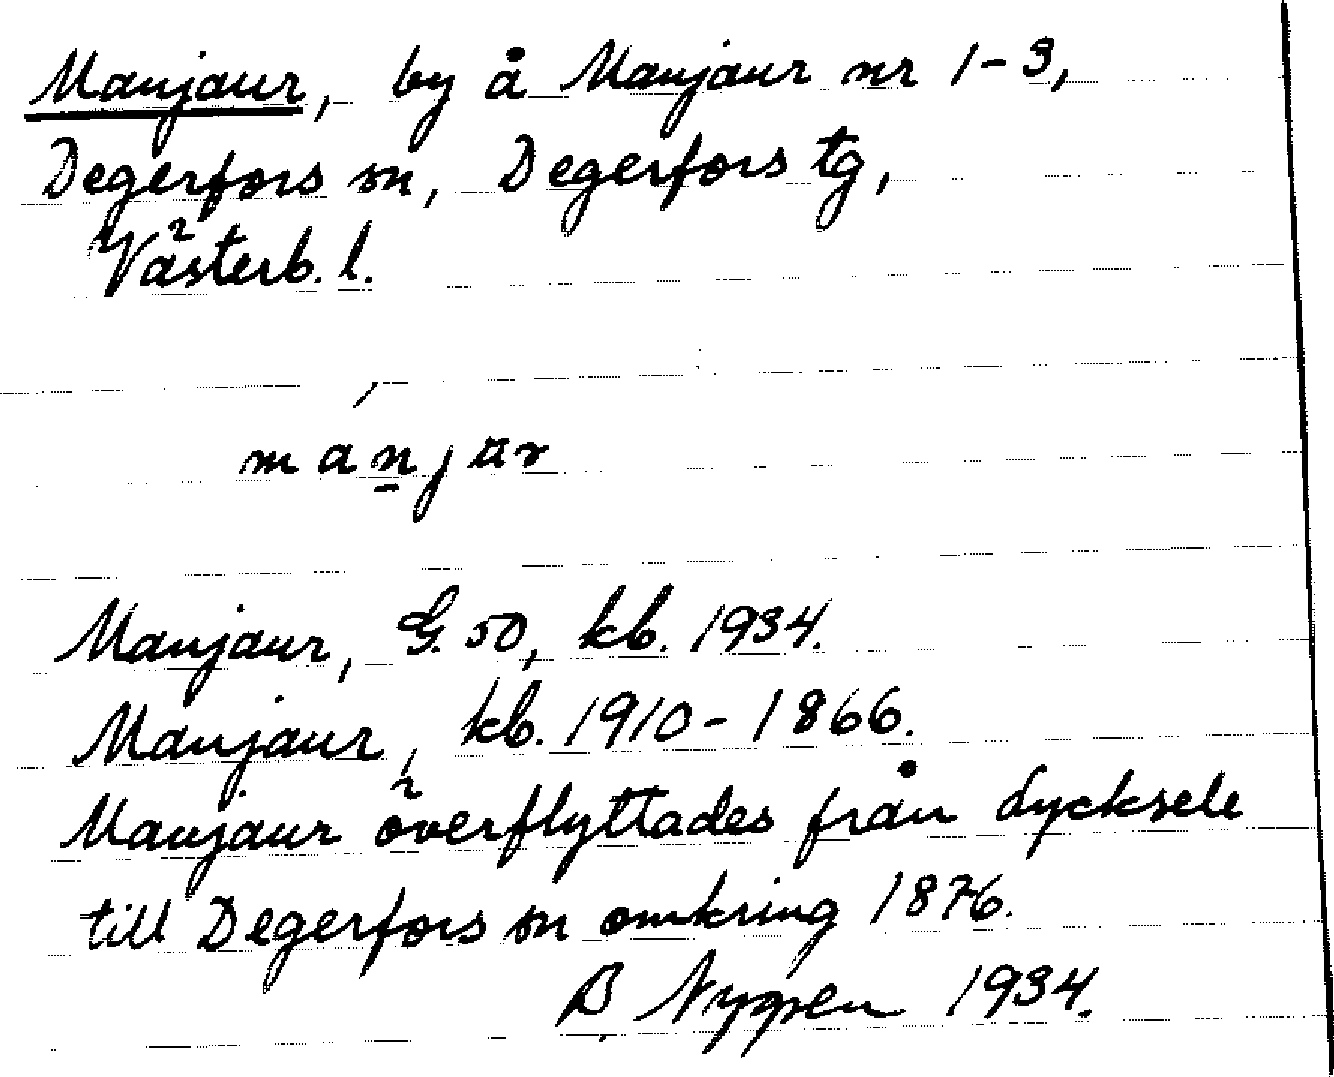 Manjaur, by å Manjaur nr 1-3,
Degerfors sn, Degerfors tg,
Västerb. l.
manjar
Manjaur, G. 50, kb. 1934.
Manjaur, kb. 1910-1866.
Manjaur överflyttades från Lycksele
till Degerfors sn omkring 1876.
B Nypen 1934.